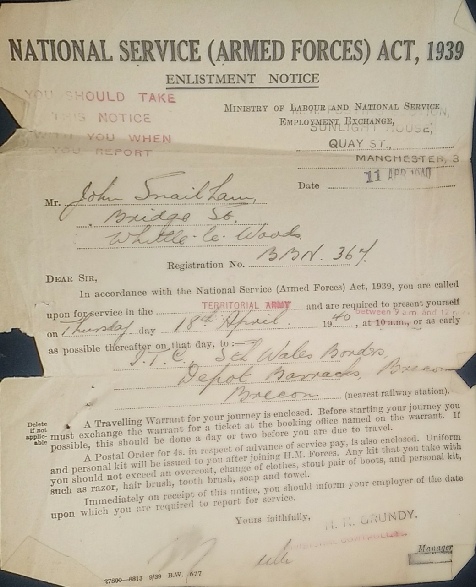 NATIONAL SERVICE (ARMED FORCES) ACT, 1939
ENLISTMENT NOTICE
YOU SHOULD TAKE
THIS NOTICE
WITH YOU WHEN
YOU REPORT
MINISTRY OF LABOUR AND NATIONAL SERVICE
EMPLOYMENT EXCHANGE,
SUNLIGHT HOUSE,
QUAY ST.,
MANCHESTER, 3
Date 11 APR 1940
Mr. John Snailham,
Bridge St.
Whittle-le-Woods
Registration No. BBN 367.
DEAR SIR,
In accordance with the National Service (Armed Forces) Act, 1939, you are called
upon for service in the TERRITORIAL ARMY and are required to present yourself
between 9 am and 12
on Thursday day 18th April 1940, at 10 a.m., or as early
as possible thereafter on that day, to:—
I.T.C. Sth Wales Borders,
Depot Barracks, Brecon
Brecon (nearest railway station).
Delete if not applicable
A Travelling Warrant for your journey is enclosed. Before starting your journey you
must exchange the warrant for a ticket at the booking office named on the warrant. If
possible, this should be done a day or two before you are due to travel.
A Postal Order for 4s. in respect of advance of service pay, is also enclosed. Uniform
and personal kit will be issued to you after joining H.M. Forces. Any kit that you take with
you should not exceed an overcoat, change of clothes, stout pair of boots, and personal kit,
such as razor, hair brush, tooth brush, soap and towel.
Immediately on receipt of this notice, you should inform your employer of the date
upon which you are required to report for service.
Yours faithfully,
H. N. GRUNDY.
Manager